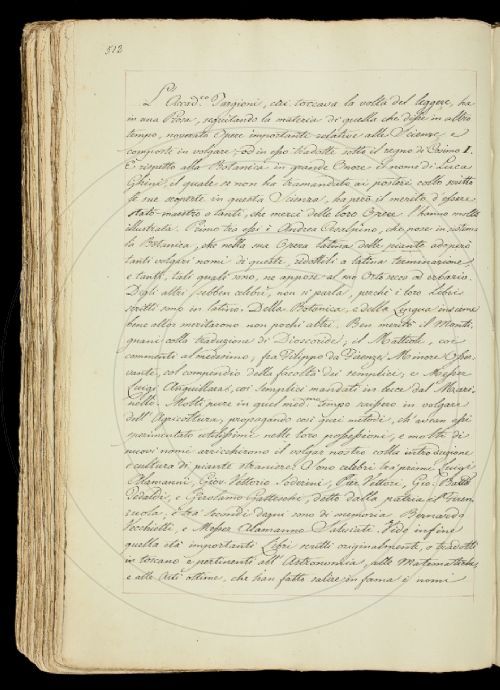 512
L'Accad.co Targioni, cui toccava la volta del leggere, ha
in una Prosa, seguitando la materia di quella che disse in altro
tempo, noverate Opere importanti relative alle Scienze e
composte in volgare, od in esso tradotte sotto il regno di Cosimo I.
E rispetto alla Botanica in grande Onore è il nome di Luca
Ghini, il quale se non ha tramandato ai posteri collo scritto
le sue scoperte in questa Scienza, ha però il merito d'essere
stato maestro a tanti, che mercè delle loro Opere l'hanno molto
illustrata. Primo tra essi è Andrea Cesalpino, che pose in sistema
la Botanica, che nella sua Opera latina delle piante adoperò
tanti volgari nomi di queste, ridottili a latina terminazione
e tanti, tali quali sono, ne appose al suo Orto secco od erbario.
Degli altri sebben celebri, non si parla, perchè i loro Libri
scritti sono in latino. Della Botanica, e della Lingua insieme
bene allor meritarono non pochi altri. Ben meritò il Monti-
giani colla traduzione di Dioscoride; il Mattioli, coi
commenti al medesimo, fra Filippo da Firenze Minore Osser-
vante, col compendio della facoltà dei semplici, e Messer
Luigi Anguillara, coi semplici mandati in luce dal Mari-
nello. Molti pure in quel med.mo tempo scrissero in volgare
dell'Agricoltura, propagando così quei metodi, ch'avean essi
sperimentato utilissimi nelle loro possessioni, e molti di
nuovi nomi arricchirono il volgar nostro colla introduzione
e cultura di piante straniere. Sono celebri tra primi Luigi
Alamanni, Giov. Vettorio Soderini, Pier Vettori, Gio. Batta
Tedaldi, e Girolamo Gatteschi, detto dalla patria il Firen-
zuola, e tra secondi degni sono di memoria Bernardo
Vecchietti, e Messer Alamanno Salviati. Vide infine
quella età importanti Libri scritti originalmente, o tradotti
in toscano e pertinenti all'Astronomia, alle Matematiche,
e alle Arti ottime, che han fatto salire in fama i nomi